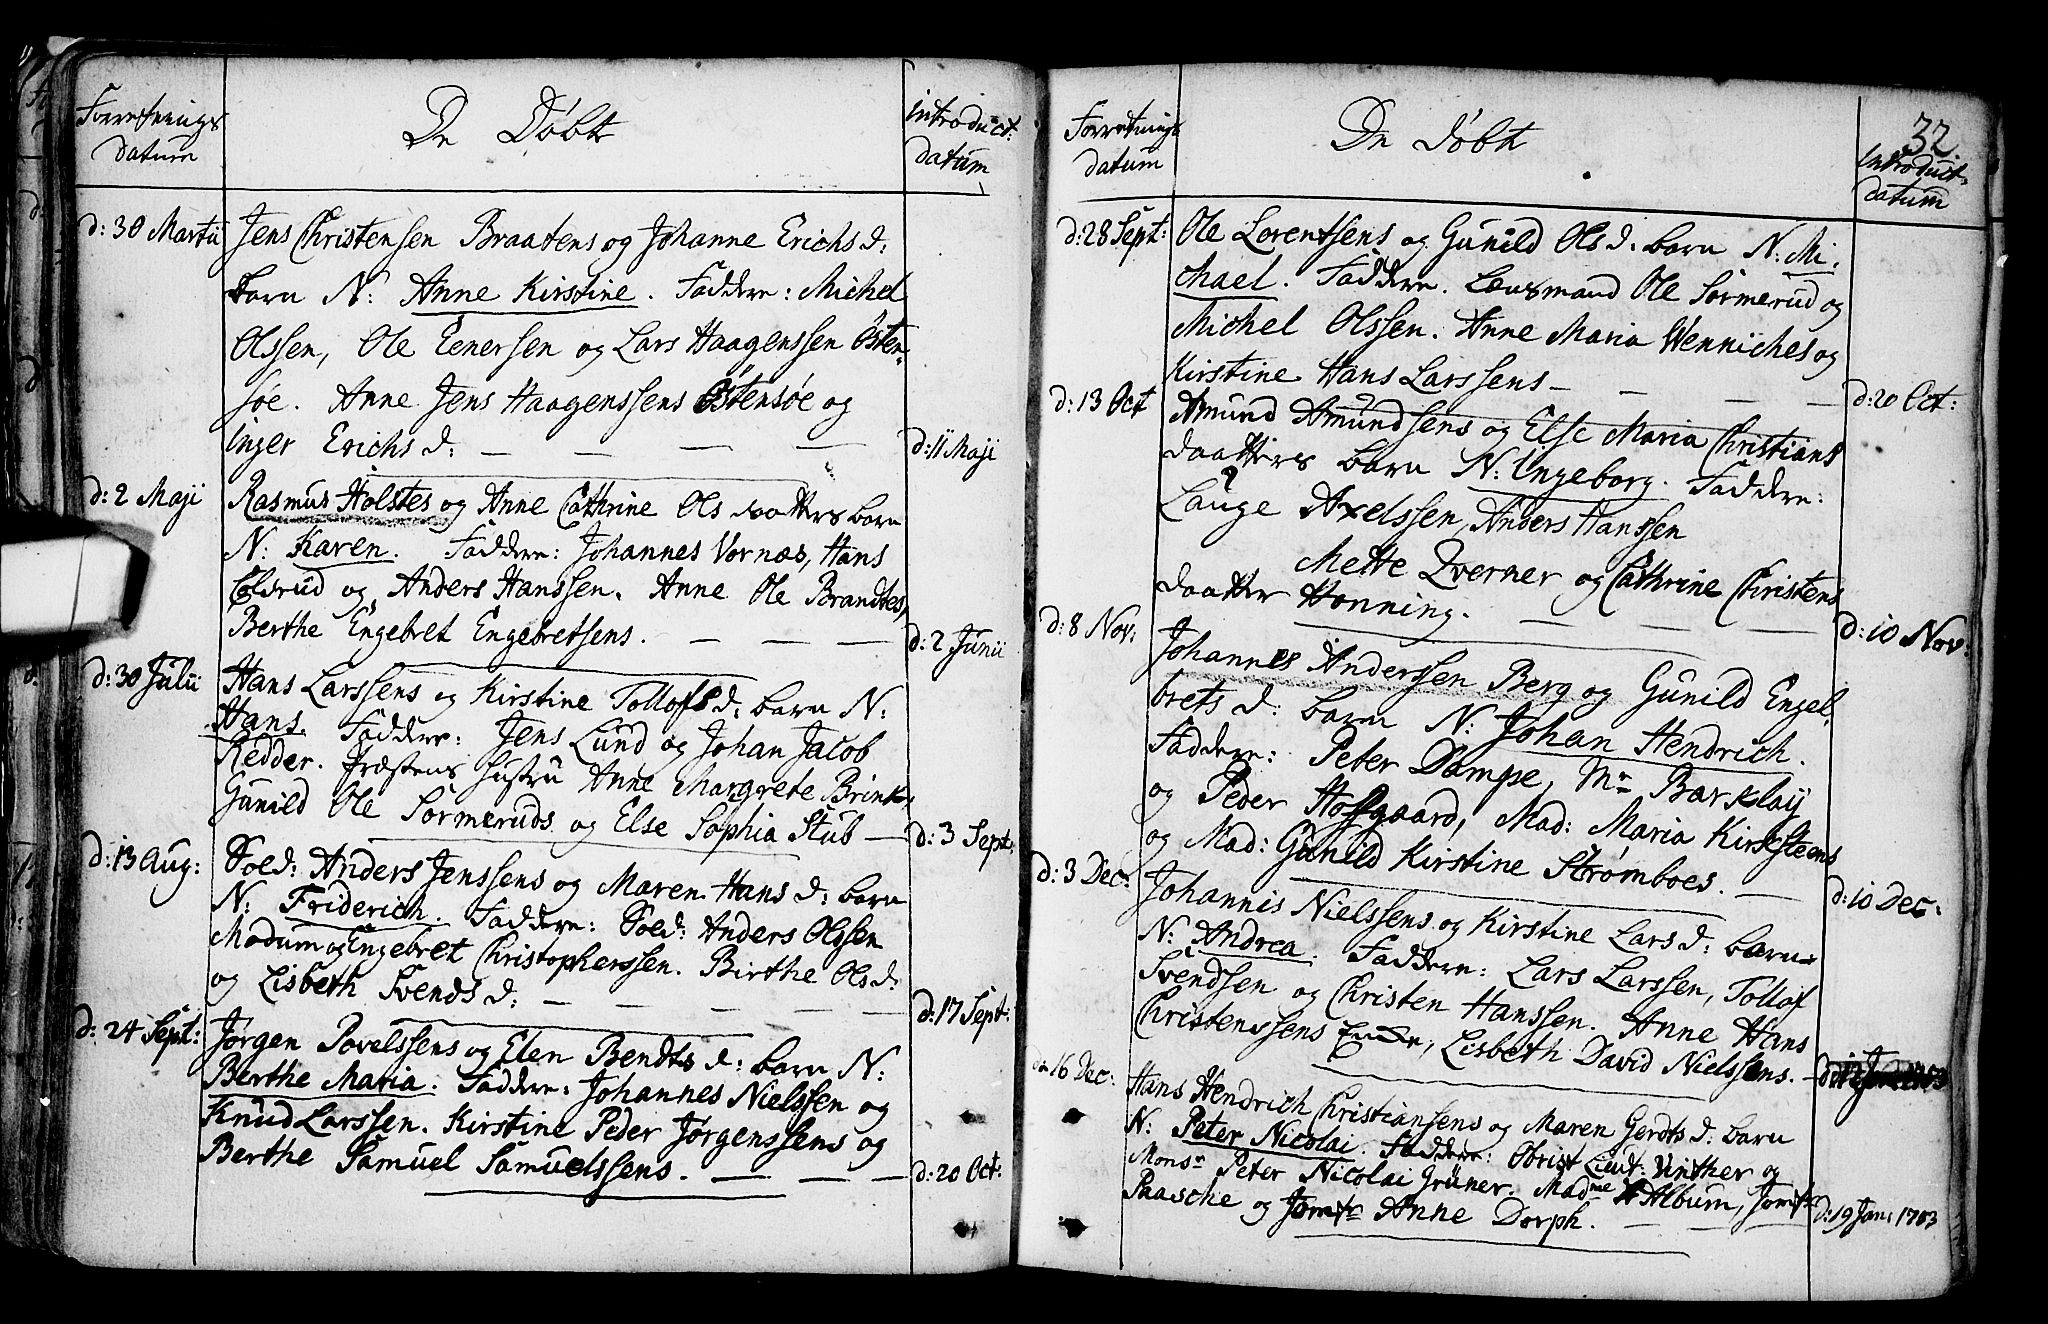 Forretnings
datum
De Døbt
Introduct:
datum
d: 30 Martii
Jens Christensen Braatens og Johanne Erichs d:
barn N: Anne Kirstine. Faddere: Michel
Olssen, Ole Eenersen og Lars Haagenssen Østen-
søe. Anne Jens Haagenssens Østensøe og
Inger Erichs d:
d: 11 Maji
d: 2 Maji
Rasmus Holstes og Anne Cathrine Ols daatters barn
N: Karen. Faddere: Johannes Vornæs, Hans
Coldrud og Anders Hanssen. Anne Ole Brandtes,
Berthe Engebret Engebretsens.
d: 2 Junii
d: 30 Julii
Hans Larssens og Kirstine Tollofs d: barn N:
Hans. Faddere: Jens Lund og Johan Jacob
Redder. Præstens Hustru Anne Margrete Brink,
Gunild Ole Sørmeruds og Else Sophia Stub
d: 3 Sept:
d: 13 Aug:
Sold: Anders Jenssens og Maren Hans d: barn
N: Friderich. Faddere: Sold: Anders Olssen
Modum og Engebret Christopherssen. Birthe Ols d:
og Lisbeth Svends d:
d: 17 Sept:
d: 24 Sept:
Jørgen Povelssens og Elen Bendts d: barn N:
Berthe Maria. Faddere: Johannes Nielssen og
Knud Larssen. Kirstine Peder Jørgenssens og
Berthe Samuel Samuelssens.
d: 20 Oct:
Forretnings
datum
De Døbt
32.
Introduct:
datum
d: 28 Sept:
Ole Lorentsens og Gunild Ols d: barn N: Mi-
chael. Faddere. Lensmand Ole Sørmerud og
Michel Olssen. Anne Maria Wenniches og
Kirstine Hans Larssens
d: 20 Oct:
d: 13 Oct
Amund Amundsens og Else Maria Christians
daatters barn N: Ingeborg. Faddere:
Lauge Axelssen, Anders Hanssen
Mette Qverner og Cathrine Christens
daatter Honning.
d: 10 Nov:
d: 8 Nov:
Johannes Anderssen Berg og Gunild Engel,
brets d: barn N: Johan Hendrich.
Faddere: Peter Dampe, Mr Barklay
og Peder Hofgaard, Mad: Maria Kirksteens
og Mad: Gunild Kirstine Strømboes.
d: 10 Dec:
d: 3 Dec:
Johannis Nielssens og Kirstine Lars d: barn
N: Andrea. Faddere: Lars Larssen, Tollof
Svendsen og Christen Hanssen. Anne Hans
Christenssens Enke, Lisbeth David Nielssens.
d: 16 Dec:
Hans Hendrich Christiansens og Maren Gerdts d: barn
N: Peter Nicolai. Faddere: Obrist Lieut: Vinther og
Monsr Peter Nicolai Grüner. Madme Album, Jomfr
Paasche og Jomfr Anne Dorph.
d: 19 Jan: 1783